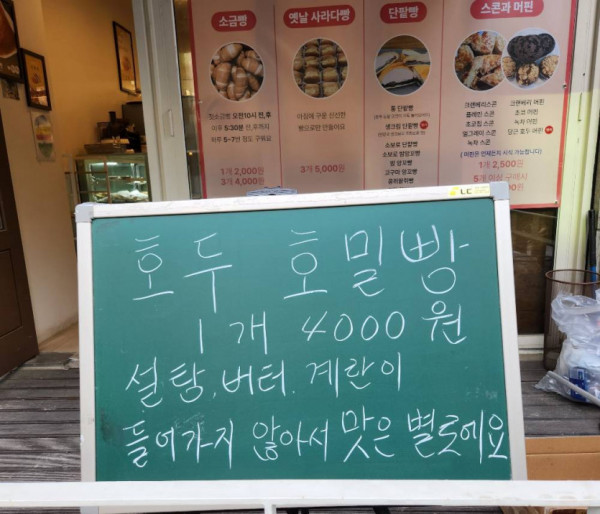 소금빵
옛날 사라다빵
단팥빵
스콘과 머핀
오전10시 전,후
아침에 구운 신선한
빵으로만 만들어요
통 단팥빵
생크림 단팥빵
소보로 단팥빵
소보로 밤앙꼬빵
밤 앙꼬빵
고구마 앙꼬빵
크랜베리스콘
플레인 스콘
초코칩 스콘
얼그레이 스콘
녹차 스콘
크랜베리 머핀
초코 머핀
녹차 머핀
당근 호두 머핀
1개 2,000원
3개 4,000원
3개 5,000원
1개 2,500원
5개 이상 구매시
LC
호두 호밀빵
1개 4000원
설탕, 버터. 계란이
들어가지 않아서 맛은 별로에요